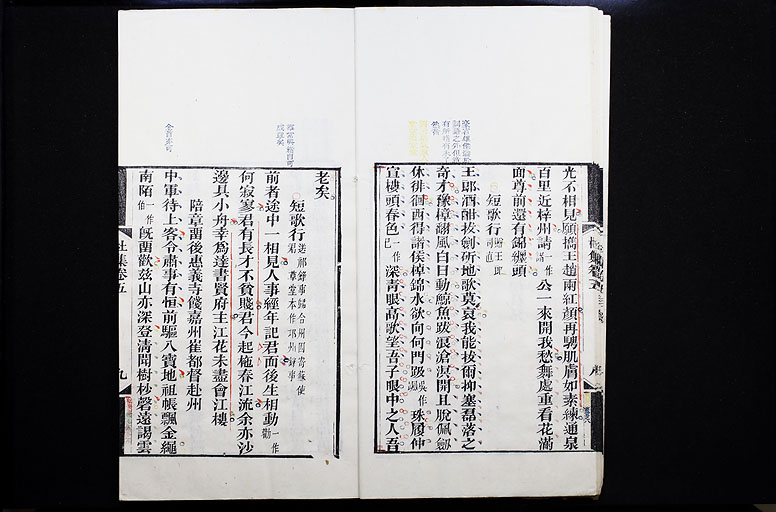 光不相見願攜王趙兩紅顏再騁肌膚如素練通泉
百里近梓州請一作諸公一來開我愁舞處重看花滿
面尊前還有錦纏頭
短歌行贈王郎司直
王郎酒酣拔劍斫地歌莫哀我能拔爾抑塞磊落之
奇才豫樟翻風白日動鯨魚跋浪滄溟開且脫佩劍
休徘徊西得諸侯棹錦水欲向何門趿珠履仲
宣樓頭春色一作已深青眼高歌望吾子眼中之人吾
老矣
短歌行送祁錄事歸合州因寄蘇使君
前者途中一相見人事經年記君面後生相動一作勸
何寂寥君有長才不貧賤君今起柂春江流余亦沙
邊具小舟幸為達書賢府主江花未盡會江樓
陪章留後惠義寺餞嘉州崔都督赴州
中軍待上客令肅事有恒前驅八寶地祖帳飄金繩
南陌一作伯既留歡茲山亦深登清聞樹杪磬遠謁雲
杜集卷五
九